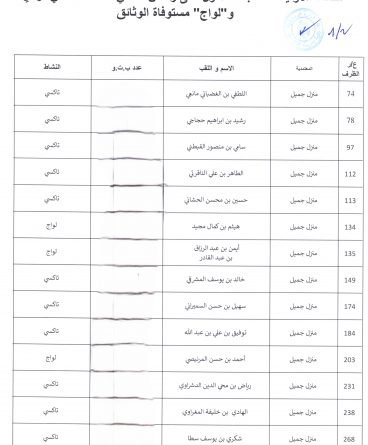 و "لواج" مستوفاة الوثائق
1/2
ع/ر الظرف
المعتمدية
الاسم و اللقب
عدد ب.ت.و
النشاط
74 منزل جميل اللطفي بن الغضباني مانعي تاكسي
78 منزل جميل رشيد بن ابراهيم حجاجي تاكسي
97 منزل جميل سامي بن منصور القبطني تاكسي
112 منزل جميل الطاهر بن علي الناقرتي تاكسي
113 منزل جميل حسين بن محسن الحشاني تاكسي
134 منزل جميل هيثم بن كمال مجيد لواج
135 منزل جميل أيمن بن عبد الرزاق لواج
بن عبد القادر
149 منزل جميل خالد بن يوسف المشرقي تاكسي
174 منزل جميل سهيل بن حسن السميراني تاكسي
184 منزل جميل توفيق بن علي بن عبد الله تاكسي
203 منزل جميل أحمد بن حسن المرنيصي لواج
231 منزل جميل رياض بن محي الدين الدشراوي تاكسي
238 منزل جميل الهادي بن خليفة المغراوي تاكسي
268 منزل جميل شكري بن يوسف سطا تاكسي